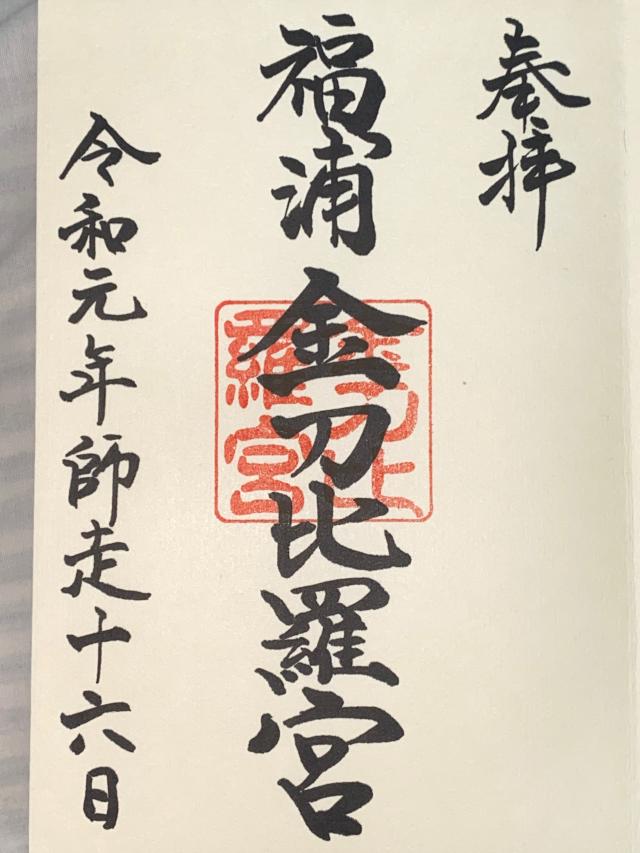 奉拝
福浦金刀比羅宮
金刀比羅宮
令和元年師走十六日